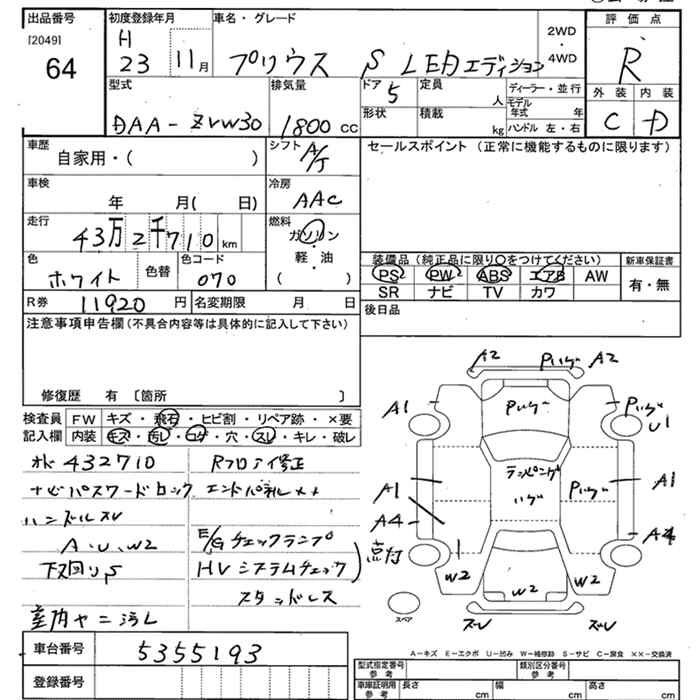 出品番号
[2049]
64
初度登録年月
H
23 11月
車名・グレード
プリウス S LEDエディション
2WD
・
4WD
評価点
R
外装 内装
C D
型式
DAA-ZVW30
排気量
1800 cc
ドア
5
定員
人
ディーラー・並行
形状
積載
kg
モデル年式 年
ハンドル 左・右
車歴
自家用・( )
シフト
A/T
車検
年 月( 日)
冷房
AAC
走行
43万2千710 km
燃料
ガソリン
・
軽・油
( )
色
ホワイト
色替
色コード
070
R券 11920 円
名変期限 月 日
セールスポイント (正常に機能するものに限ります)
装備品(純正品に限り○をつけてください)
PS PW ABS エアB AW
SR ナビ TV カワ
新車保証書
有・無
後日品
注意事項申告欄(不具合内容等は具体的に記入して下さい)
修復歴 有 〔箇所 〕
検査員記入欄
FW キズ・飛石・ヒビ割・リペア跡・×要
内装 キズ・汚レ・コゲ・穴・スレ・キレ・破レ
432710
ナビパスワードロック
ハンドルスレ
A、U、W2
下回りS
室内ヤニ汚レ
Rフロア修正
E/Gチェックランプ
HVシステムチェック
点灯
スタッドレス
A2 A2
A1 U1
A1 A1
A4 A4
W2 W2 W2
スレ スレ
スペア
車台番号 5355193
登録番号
A-キズ E-エクボ U-凹み W-補修跡 S-サビ C-腐食 ××-交換済
型式指定番号
参考
類別区分番号
参考
車庫証明用
参考
長さ cm
幅 cm
高さ cm